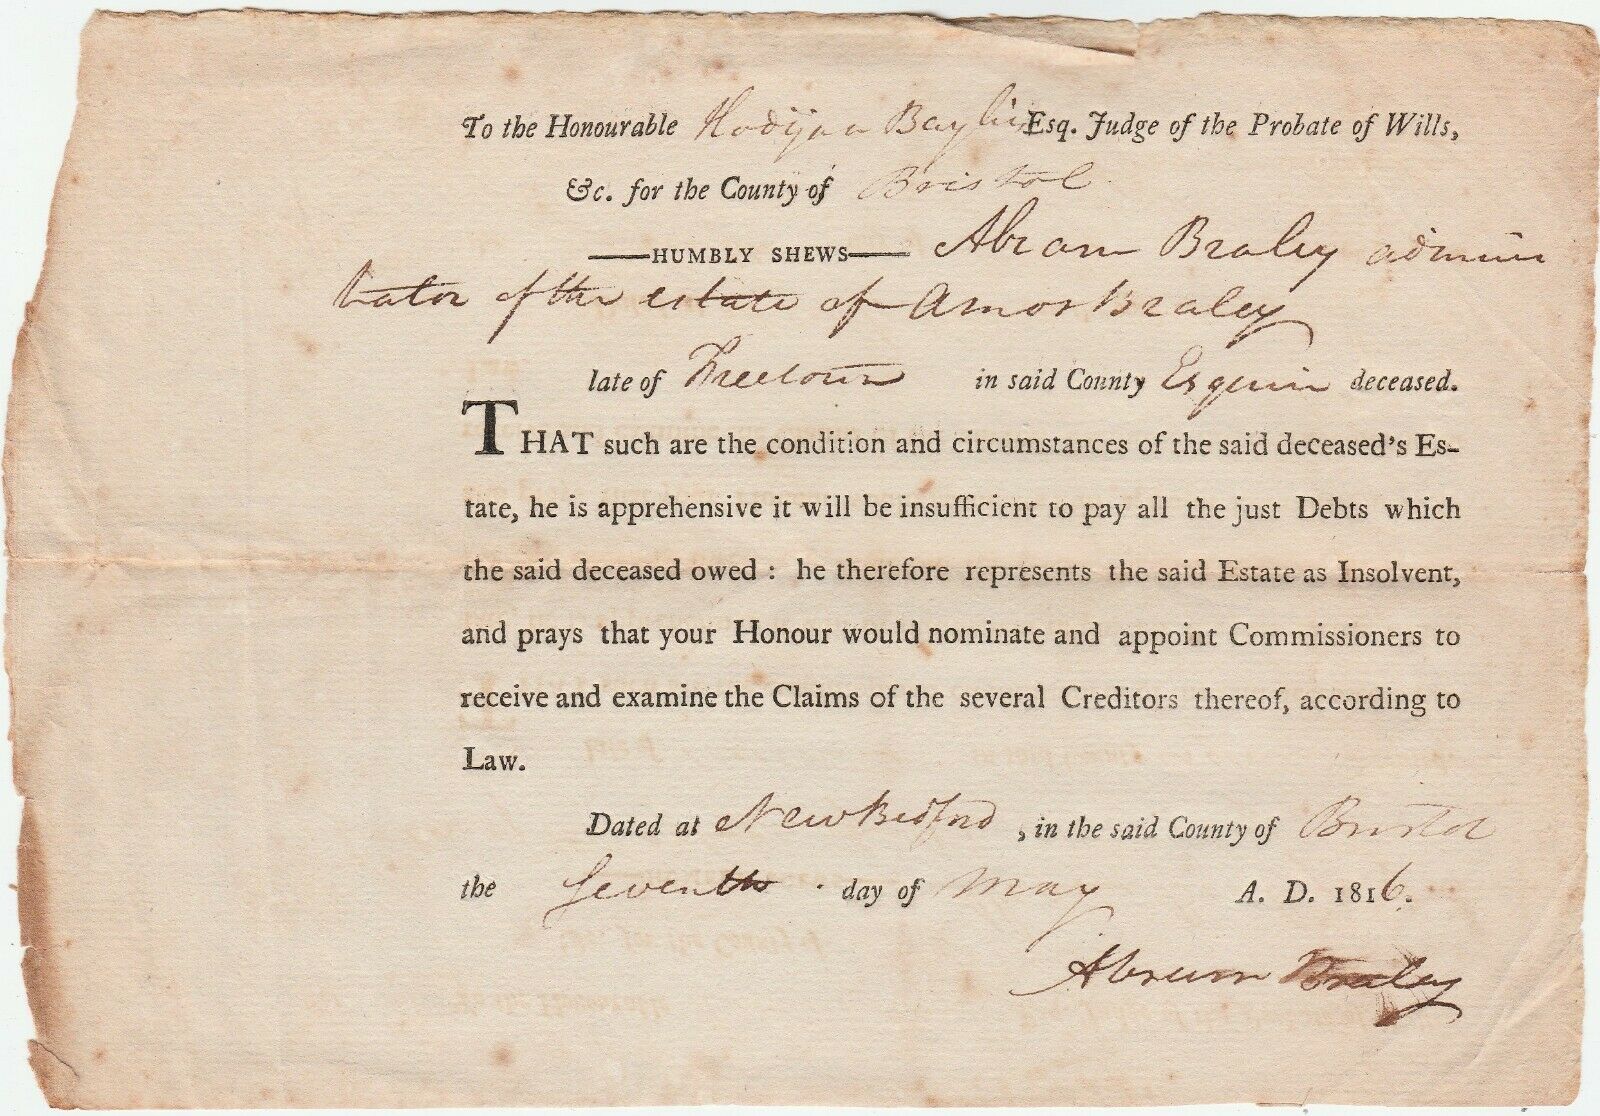 To the Honourable Hodijah Baylies Esq. Judge of the Probate of Wills,
&c. for the County of Bristol
—HUMBLY SHEWS— Abram Braley adminis
trator of the estate of Amos Braley
late of Freetown in said County Esquire deceased.
THAT such are the condition and circumstances of the said deceased's Es-
tate, he is apprehensive it will be insufficient to pay all the just Debts which
the said deceased owed : he therefore represents the said Estate as Insolvent,
and prays that your Honour would nominate and appoint Commissioners to
receive and examine the Claims of the several Creditors thereof, according to
Law.
Dated at New Bedford , in the said County of Bristol
the Seventh day of May A. D. 1816.
Abram Braley